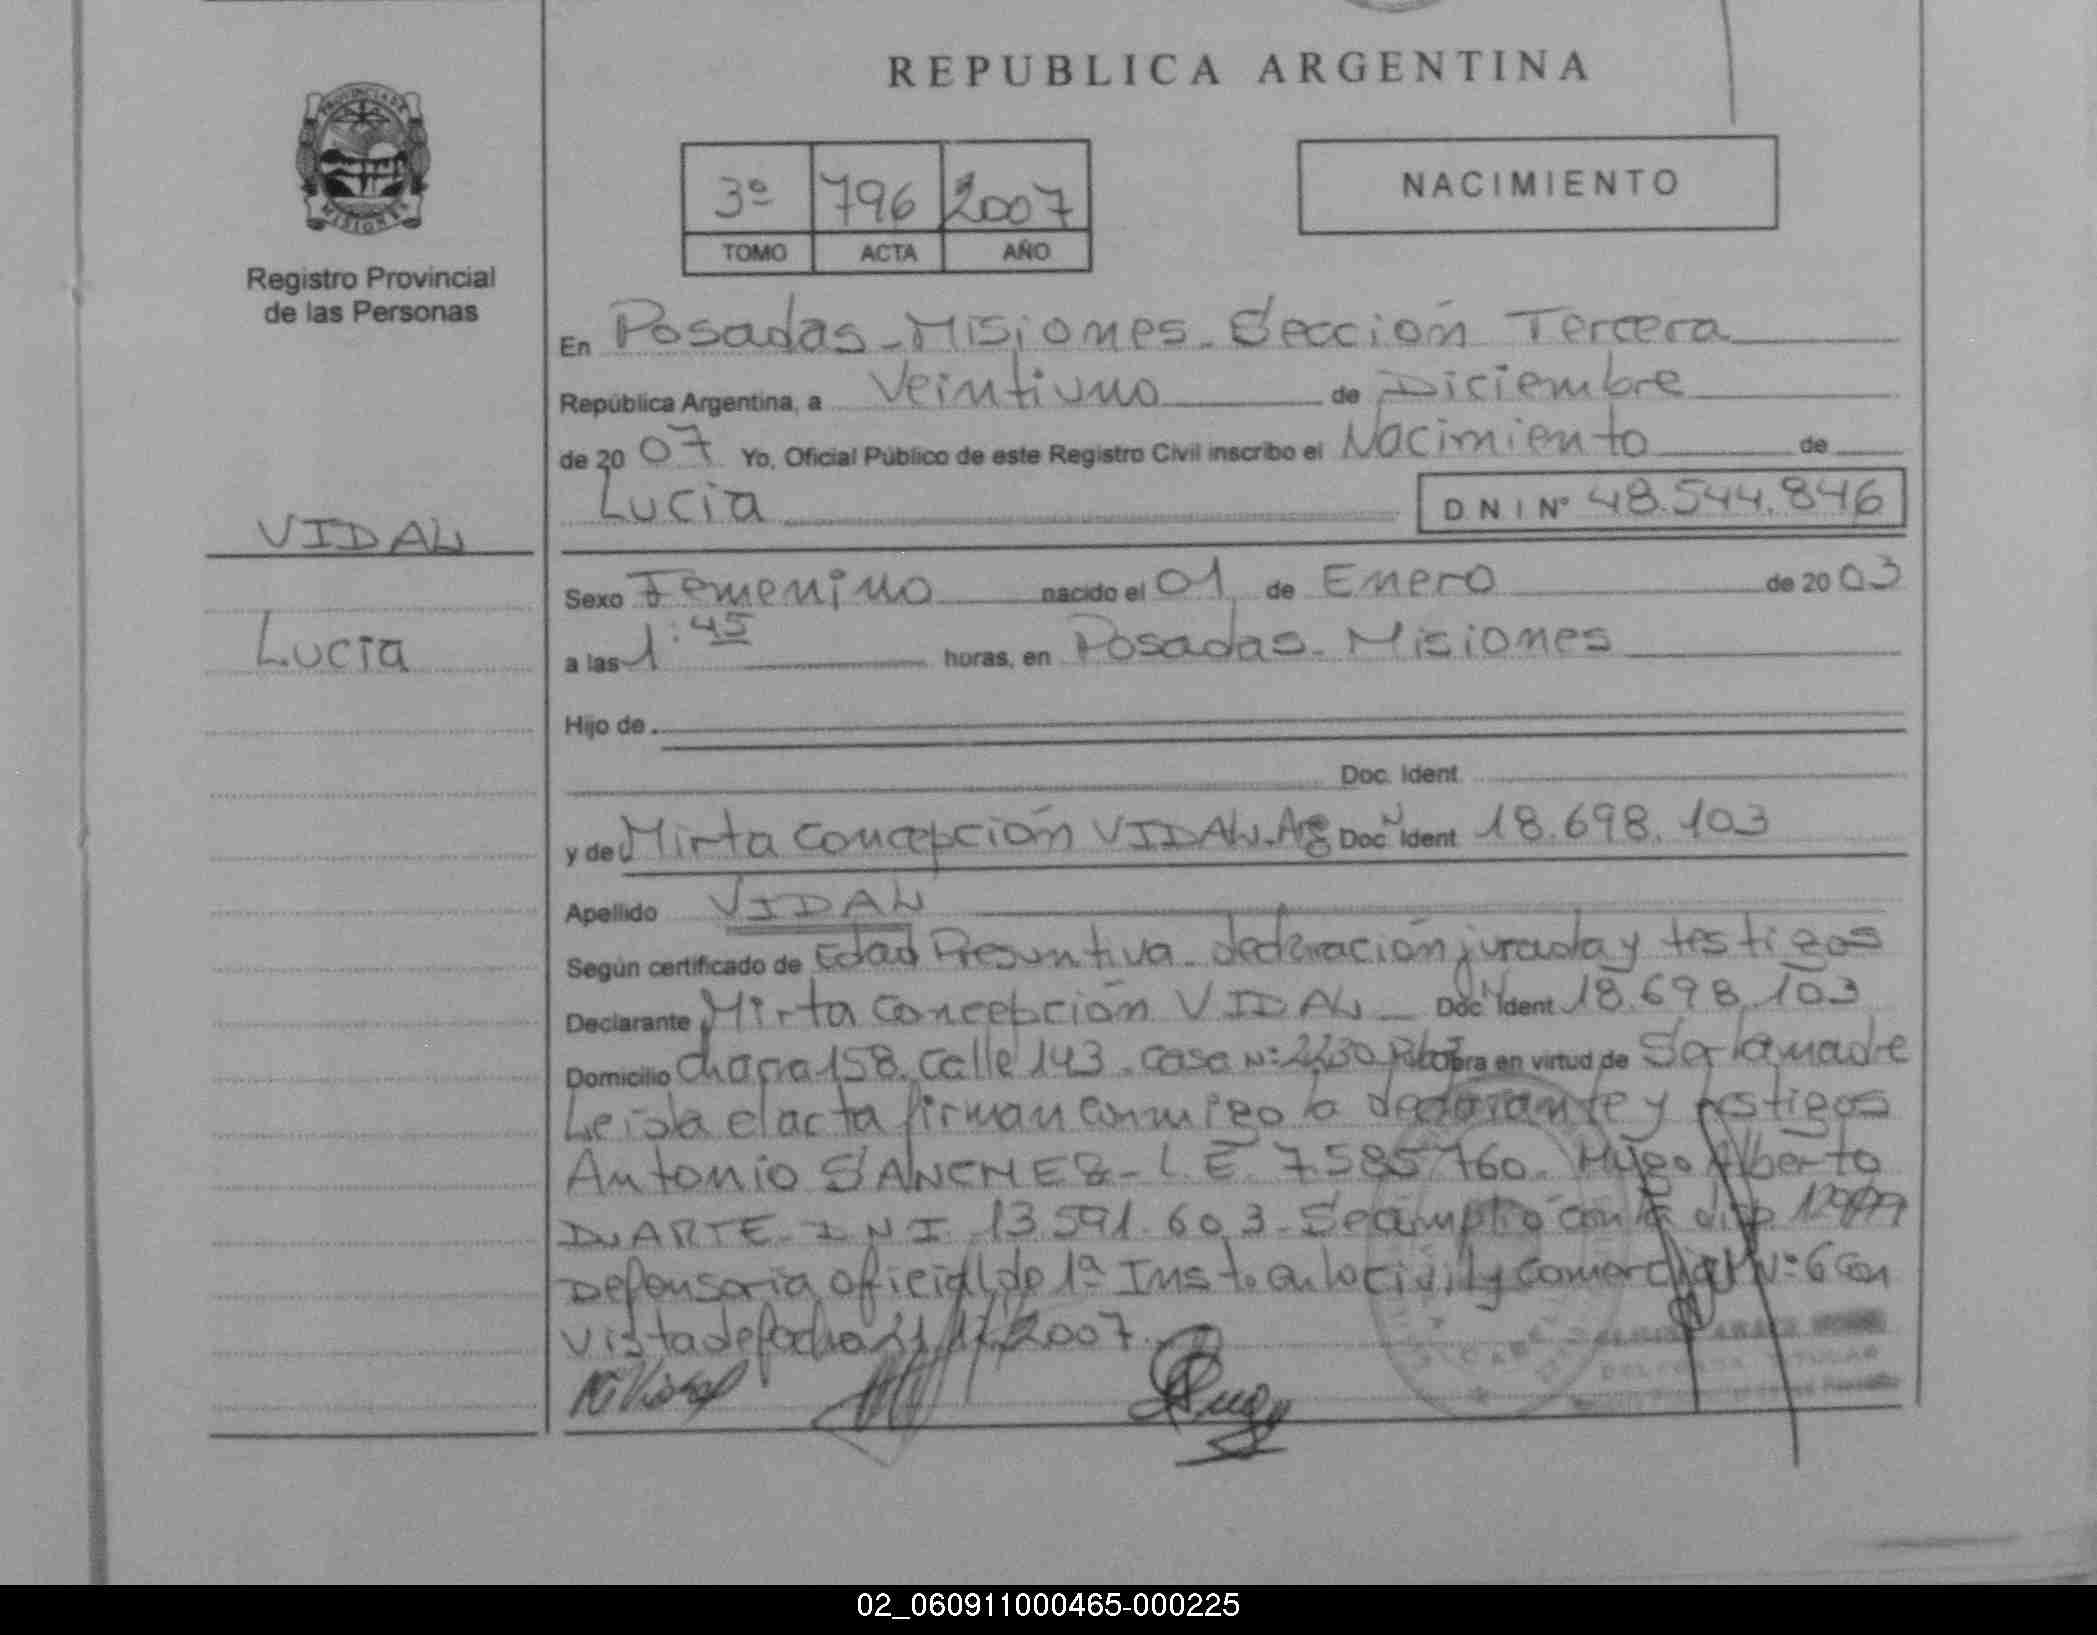 REPUBLICA ARGENTINA
PROVINCIA DE
MISIONES
Registro Provincial
de las Personas
3º 796 2007
TOMO ACTA AÑO
NACIMIENTO
En Posadas - Misiones - Sección Tercera
República Argentina, a Veintiuno de Diciembre
de 20 07 Yo, Oficial Público de este Registro Civil inscribo el Nacimiento de
Lucia DNI Nº 48.544.846
VIDAL
Lucia
Sexo Femenino nacido el 01 de Enero de 20 03
a las 1:45 horas, en Posadas - Misiones
Hijo de
Doc. Ident.
y de Mirta Concepción VIDAL - Arg Doc. Ident 18.698.103
Apellido VIDAL
Según certificado de Edad Presuntiva - declaración jurada y testigos
Declarante Mirta Concepción VIDAL - Doc. Ident 18.698.103
Domicilio chacra 158. Calle 143 - Casa Nº: 2230 Obra en virtud de Ser la madre
Leida el acta firman conmigo la declarante y testigos
Antonio SANCHEZ - L.E. 7.585760. Hugo Alberto
DUARTE - DNI 13.591.603 - Se cumplió con la disp
Defensoria oficial de 1ª Inst. en lo civil y Comercial Nº: 6 con
vista de fecha 2007.
TITULAR
02_060911000465-000225